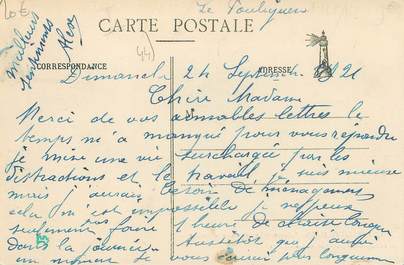 20€
Le Pouliguen
Meilleurs
sentiments
Alex
(44)
CARTE POSTALE
CORRESPONDANCE
ADRESSE
Dimanche 24 Septembre 1921
Chère Madame
Merci de vos aimables lettres le
temps m'a manqué pour vous répondre
je mène une vie surchargée par les
distractions et le travail, je suis mieux
mais j'aurais besoin de ménagement
cela m'est impossible je ne peux
pas
seulement faire 1 heure de chaise longue
dans la journée Aussitôt que j'aurai
un moment je vous écrirai plus longuement